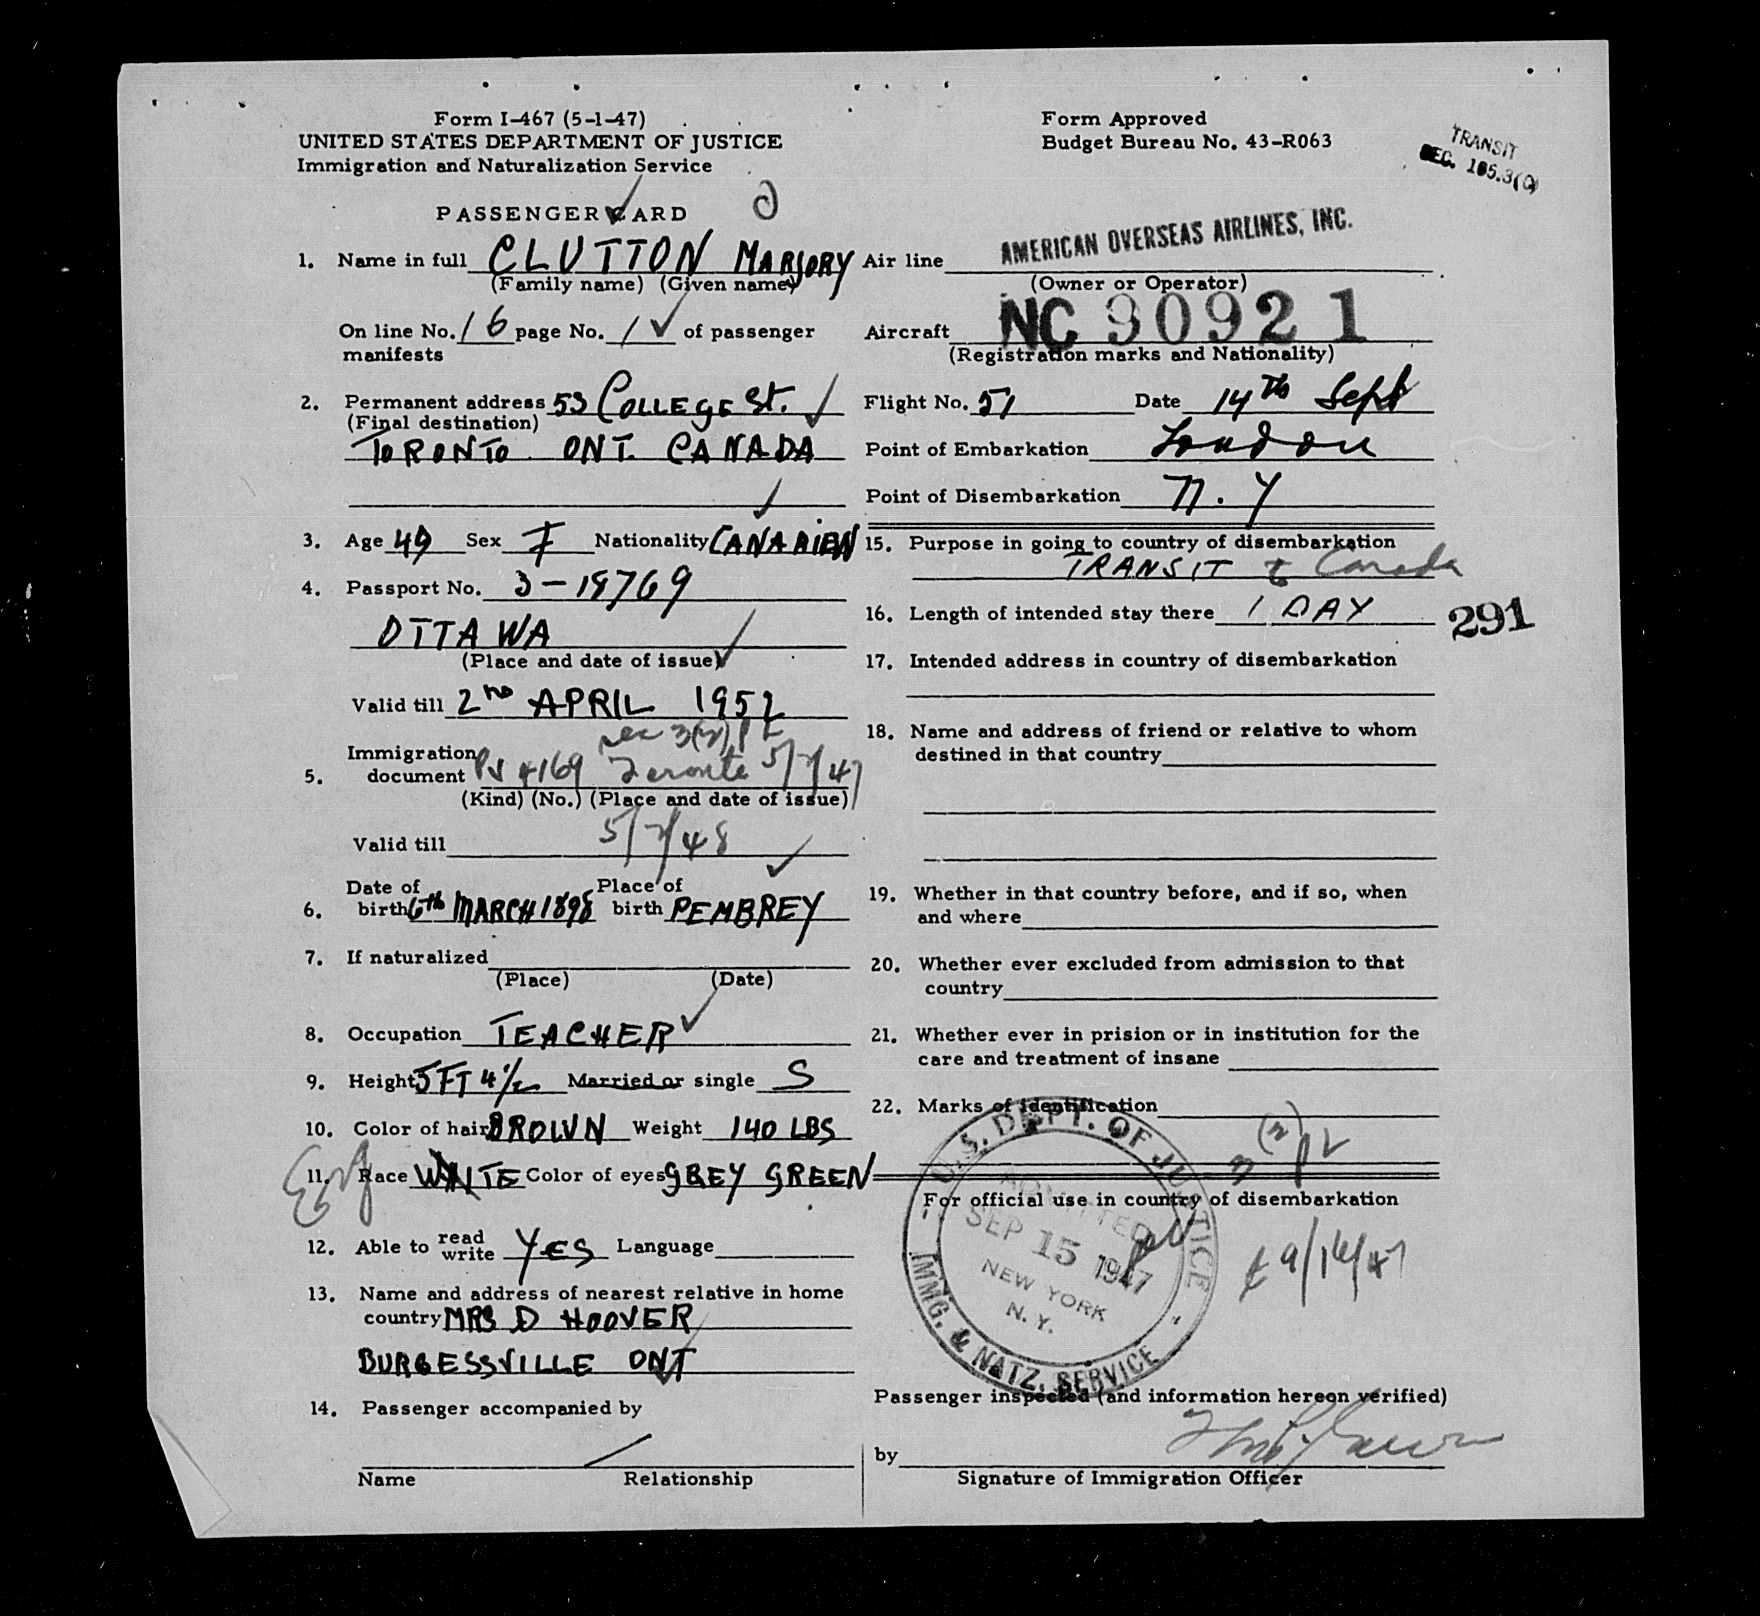 Form I-467 (5-1-47)
UNITED STATES DEPARTMENT OF JUSTICE
Immigration and Naturalization Service
PASSENGER CARD
1. Name in full CLUTTON MARJORY
(Family name) (Given name)
On line No. 16 page No. 1 of passenger
manifests
2. Permanent address 53 COLLEGE ST.
(Final destination)
TORONTO ONT. CANADA
3. Age 49 Sex F Nationality CANADIEN
4. Passport No. 3-18769
OTTAWA
(Place and date of issue)
Valid till 2nd APRIL 1952
sec 3(2)
Immigration
5. document PV 4169 Toronto 5/7/47
(Kind) (No.) (Place and date of issue)
Valid till 5/7/48
Date of Place of
6. birth 6th MARCH 1898 birth PEMBREY
7. If naturalized
(Place) (Date)
8. Occupation TEACHER
9. Height 5 FT 4 1/2 Married or single S
10. Color of hair BROWN Weight 140 LBS
Eng
11. Race WHITE Color of eyes GREY GREEN
12. Able to read write YES Language
13. Name and address of nearest relative in home
country MRS D HOOVER
BURGESSVILLE ONT
14. Passenger accompanied by
Name Relationship
Form Approved
Budget Bureau No. 43-R063
TRANSIT
SEC. 105.3(C)
Air line AMERICAN OVERSEAS AIRLINES, INC.
(Owner or Operator)
Aircraft NC 90921
(Registration marks and Nationality)
Flight No. 51 Date 14th Sept
Point of Embarkation London
Point of Disembarkation N.Y
15. Purpose in going to country of disembarkation
TRANSIT to Canada
16. Length of intended stay there 1 DAY
291
17. Intended address in country of disembarkation
18. Name and address of friend or relative to whom
destined in that country
19. Whether in that country before, and if so, when
and where
20. Whether ever excluded from admission to that
country
21. Whether ever in prision or in institution for the
care and treatment of insane
22. Marks of identification
3(2)
For official use in country of disembarkation
U.S. DEPT. OF JUSTICE
ADMITTED
SEP 15 1947
NEW YORK
N. Y.
IMMG. & NATZ. SERVICE
9/14/47
Passenger inspected (and information hereon verified)
by
Signature of Immigration Officer